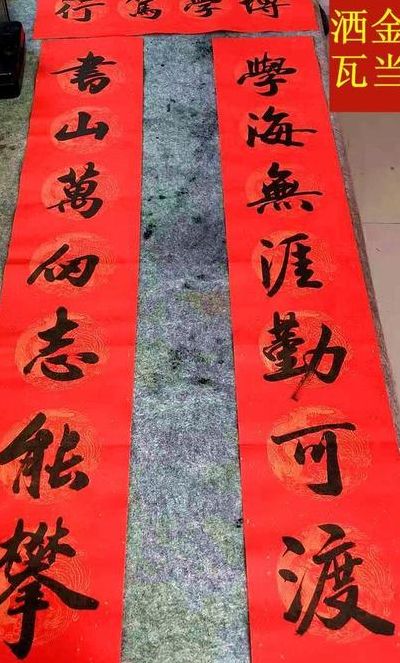 博學篤行
學海無涯勤可渡
書山萬仞志能攀
洒金
瓦当